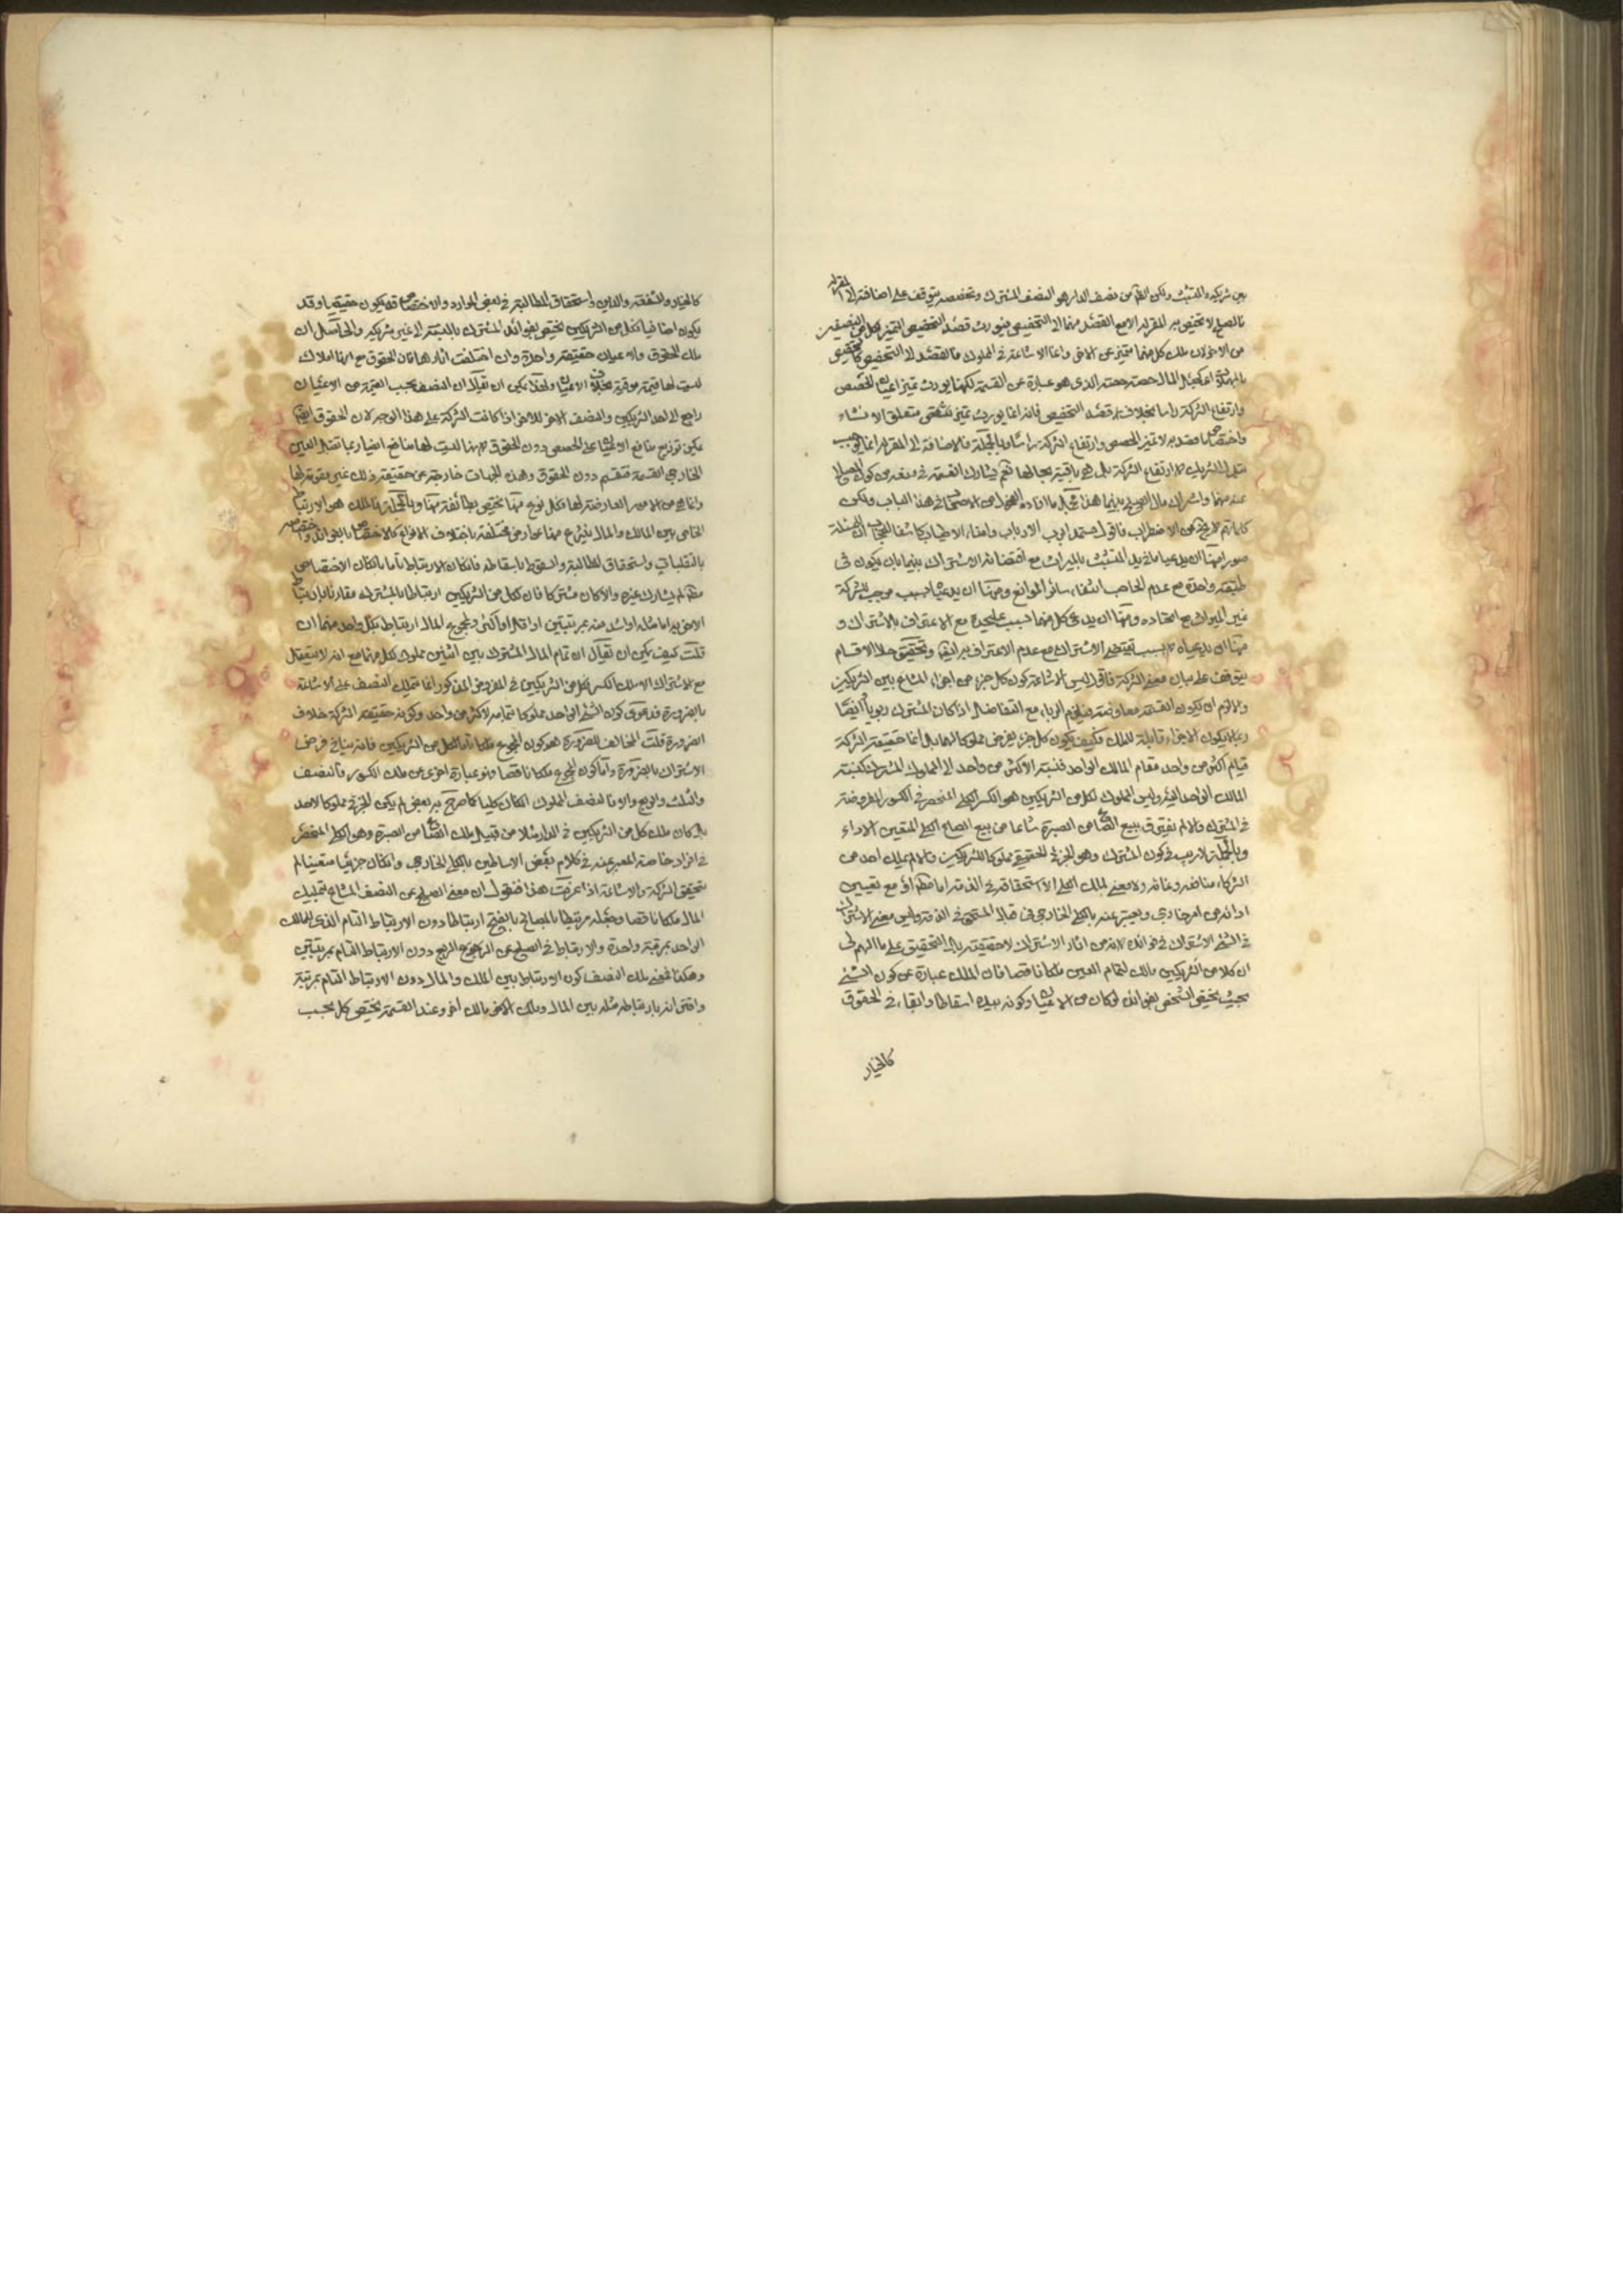 بين شريكه والمتشبث ولكن الظاهر من نصف الدار هو النصف المشترك وتخصصه يتوقف على اضافته الى المقر له
فالصلح لا تختص به المقر له الا مع القصد منهما الى التخصيص فيورث قصد التخصيص التميز لكل من النصفين
من الاخر لان ملك كل منهما متميز عن الاخر وانما الاشاعة في المملوك فالقصد الى التخصيص كالتخصيص
المال حصة حصة الذي هو عبارة عن القسمة لكنها يورث تميز اعيان الحصص
وارتفاع الشركة راسا بخلاف قصد التخصيص فانه انما يورث تميز متعلق الانشاء
واختصاص قصد به لا تميز الحصص وارتفاع الشركة راسا وبالجملة فالاضافة الى المقر له انما يوجب
الشريك لا ارتفاع الشركة بل هي باقية بحالها نعم يشارك القسمة في
عنه منهما واشتراك مال الصلح بينهما هذا مجمل ما افاده الفحول من الاصحاب في هذا الباب ولكن
كلماتهم لا تخ عن الاضطراب فاقول مستمدا برب الارباب وامنائه الاطياب كاشفا للحجاب ان للمسئلة
صور منها ان يدعيا ما في يد المتشبث بالميراث مع اقتضائه الاشتراك بينهما بان يكون في
طبقة واحدة مع عدم الحاجب وانتفاء سائر الموانع ومنها ان يدعيا بسبب موجب للشركة
غير الميراث مع اتحاده ومنها ان يدعى كل منهما بسبب على حدة مع الاعتراف بالاشتراك و
منها ان يدعياه لا بسبب يقتضى الاشتراك مع عدم الاعتراف به ايضا وتحقيق حال الاقسام
يتوقف على بيان معنى الشركة فاقول ليس الاشاعة كون كل جزء من اجزاء المشاع بين الشريكين
والا لزم ان يكون القسمة معاوضة فيلزم الرباء مع التفاضل اذا كان المشترك ربويا ايضا
ربما يكون الاجزاء قابلة للملك فكيف يكون كل جزء يفرض مملوكا لهما بل انما حقيقة الشركة
قيام اكثر من واحد مقام المالك الواحد فنسبة الاكثر من واحد الى المملوك المشترك كنسبة
المالك الواحد اليه وليس المملوك لكل من الشريكين هو الكسر الكلى المنحصر في الكسور المفروضة
في المشترك والا لم يفترق بيع الصاع من الصبرة مشاعا من بيع الصاع الكلى المتعين الاداء
وبالجملة لا ريب في كون المشترك وهو الجزئي الحقيقي مملوكا للشريكين والا لم يملك احد من
الشركاء منافعه ونمائه ولا معنى لملك الكلى الا استحقاقه في الذمة اما مطلقا او مع تعيين
ادائه من امر خارجي ويعبر عنه بالكلى الخارجي في قبال المستقر في الذمة وليس معنى الاشتراك
في الشئ الاشتراك في فوائده لانه من اثار الاشتراك لا حقيقته بل التحقيق على ما الهم لى
ان كلا من الشريكين مالك لتمام العين ملكا ناقصا فان الملك عبارة عن كون الشئ
بحيث يختص الشخص بفوائده لو كان من الاعيان وكونه بيده اسقاطا وابقاء في الحقوق
كالخيار
كالخيار والشفقة والدين واستحقاق المطالبة في بعض الموارد والاختصاص قد يكون حقيقيا وقد
يكون اضافيا فكل من الشريكين يختص بفوائد المشترك بالنسبة الى غير شريكه والحاصل ان
ملك الحقوق والاعيان حقيقة واحدة وان اختلفت اثارها فان الحقوق مع انها املاك
ليست لها قيمة موقرة بخلاف الاعيان ولهذا يمكن ان يقال ان النصف بحسب القيمة من الاعيان
راجع الى احد الشريكين والنصف الاخر للاخر اذا كانت الشركة على هذا الوجه لان الحقوق ايضا
يمكن توزيع منافع الاعيان على الحصص دون الحقوق لانها ليست لها منافع ايضا ربما تقبل العين
الخارجي القسمة فتقسم دون الحقوق وهذه الجهات خارجة عن حقيقة ذلك غير مقومة لها
وانما هي من الامور العارضة لها فكل نوع منها يختص بطائفة منها وبالجملة فالملك هو الارتباط
الخاص بين المالك والمال ينتزع منها عوارض مختلفة باختلاف الانواع كالاختصاص بالفوائد واختصاصه
بالتقلبات واستحقاق المطالبة والسقوط باسقاطه فان كان الارتباط تاما كان الاختصاص
لم يشاركه غيره والا كان مشتركا فان لكل من الشريكين ارتباطا بالمشترك مقارنا بارتباط
الاخر به اما مثله او اشد منه بمرتبتين او اقل او اكثر ولمجموع المال ارتباط بكل واحد منهما ان
قلت كيف يمكن ان يقال ان تمام المال المشترك بين اثنين مملوك لكل منهما مع انه لا يستقل
مع الاشتراك الا ملك الكسر لكل من الشريكين في المفروض المذكور انما يملك النصف على الاشاعة
بالضرورة فدعوى كون الشئ الواحد مملوكا بتمامه لاكثر من واحد وكونه حقيقة الشركة خلاف
الضرورة قلت المخالف للضرورة هو كون المجموع ملكا تاما لكل من الشريكين فانه ينافي فرض
الاشتراك بالضرورة واما كون المجموع ملكا ناقصا فهو عبارة اخرى عن ملك الكسور فالنصف
والثلث والربع والا فالنصف المملوك ان كان كليا كما صرح به بعض لم يكن الجزئي مملوكا لاحد
بل كان ملك كل من الشريكين في الدار مثلا من قبيل ملك الصاع من الصبرة وهو الكلى المنحصر
في افراد خاصة المعبر عنه في كلام بعض الاساطين بالكلى الخارجي وان كان جزئيا متعينا لم
يتحقق الشركة والاشاعة اذا عرفت هذا فنقول ان معنى الصلح عن النصف المشاع تمليك
المال ملكا ناقصا وجعله مرتبطا بالمصالح بالفتح ارتباطا دون الارتباط التام الذي للمالك
الواحد بمرتبة واحدة والارتباط في الصلح عن الربع دون الارتباط التام بمرتبتين
وهكذا فمعنى ملك النصف كون الارتباط بين الملك والمال دون الارتباط التام بمرتبة
واقترانه بارتباط مثله بين المال ومالك اخر وعند القسمة يختص كل بحسب